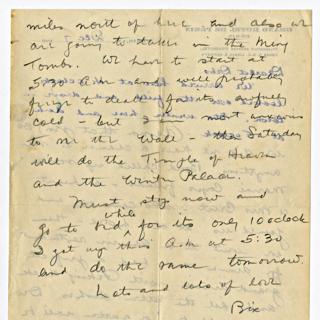 miles north of here and also we
are going to take in the Ming
Tombs. We have to start at
5:30 A.M. and will probably
freeze to death for its awful
cold but I am most anxious
to see the Wall - the Saturday
will do the Temple of Heaven
and the Winter Palace.
Must stop now and
go to bed while for its only 10 oclock
I get up this A.M. at 5:30
and do the same tomorrow.
Lots and lots of love
Bix